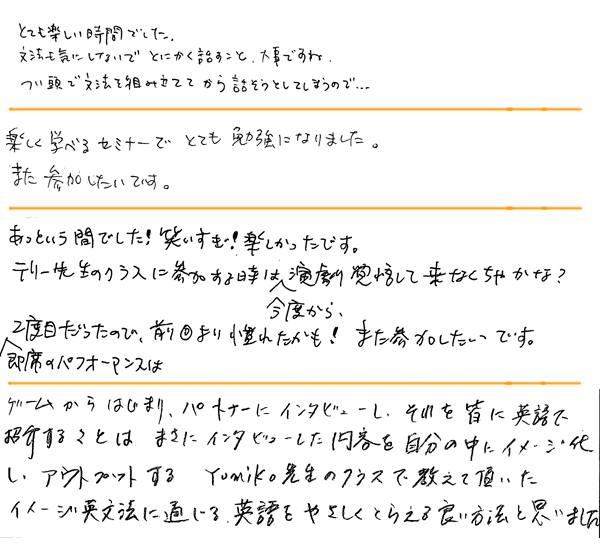 とても楽しい時間でした。
文法も気にしないで とにかく話すこと、大事ですね。
つい頭で文法を組み立ててから話そうとしてしまうので…
楽しく学べるセミナーで とても勉強になりました。
また参加したいです。
あっという間でした！笑いすぎ！楽しかったです。
テリー先生のクラスに参加する時は 演劇 覚悟して来なくちゃかな？
今度から、
2度目だったので、前回より慣れたかも！ また参加したいです。
即席のパフォーマンスは
ゲームからはじまり、パートナーにインタビューし、それを皆に英語で
紹介することは まさにインタビューした内容を自分の中にイメージ化
し、アウトプットする Yumiko先生のクラスで教えて頂いた
イメージ英文法に通じる、英語をやさしくとらえる良い方法と思いました